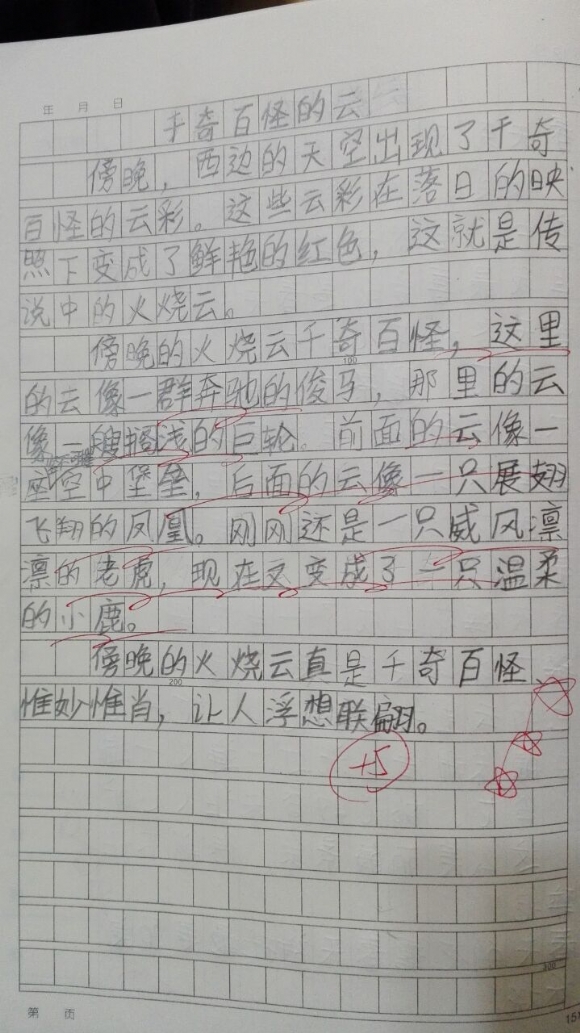 年 月 日
千奇百怪的云
傍晚，西边的天空出现了千奇
百怪的云彩。这些云彩在落日的映
照下变成了鲜艳的红色，这就是传
说中的火烧云。
傍晚的火烧云千奇百怪，这里
100
的云像一群奔驰的俊马，那里的云
像一艘搁浅的巨轮。前面的云像一
座空中堡垒，后面的云像一只展翅
飞翔的凤凰。刚刚还是一只威风凛
凛的老虎，现在又变成了一只温柔
的小鹿。
傍晚的火烧云直是千奇百怪、
200
惟妙惟肖，让人浮想联翩。
+5
300
第 页